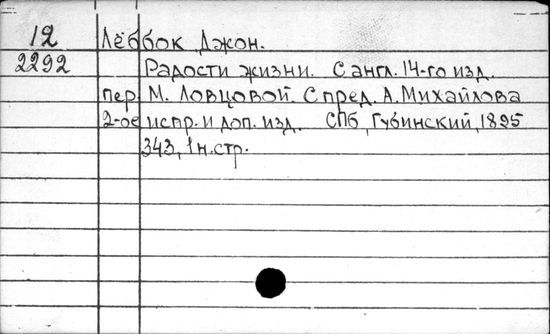 12 Лёббок Джон.
2292 Радости жизни. С англ. 14-го изд.
пер. М. Ловцовой. С пред. А. Михайлова
2-ое испр. и доп. изд. СПб, Губинский, 1895
343, 1 н. стр.